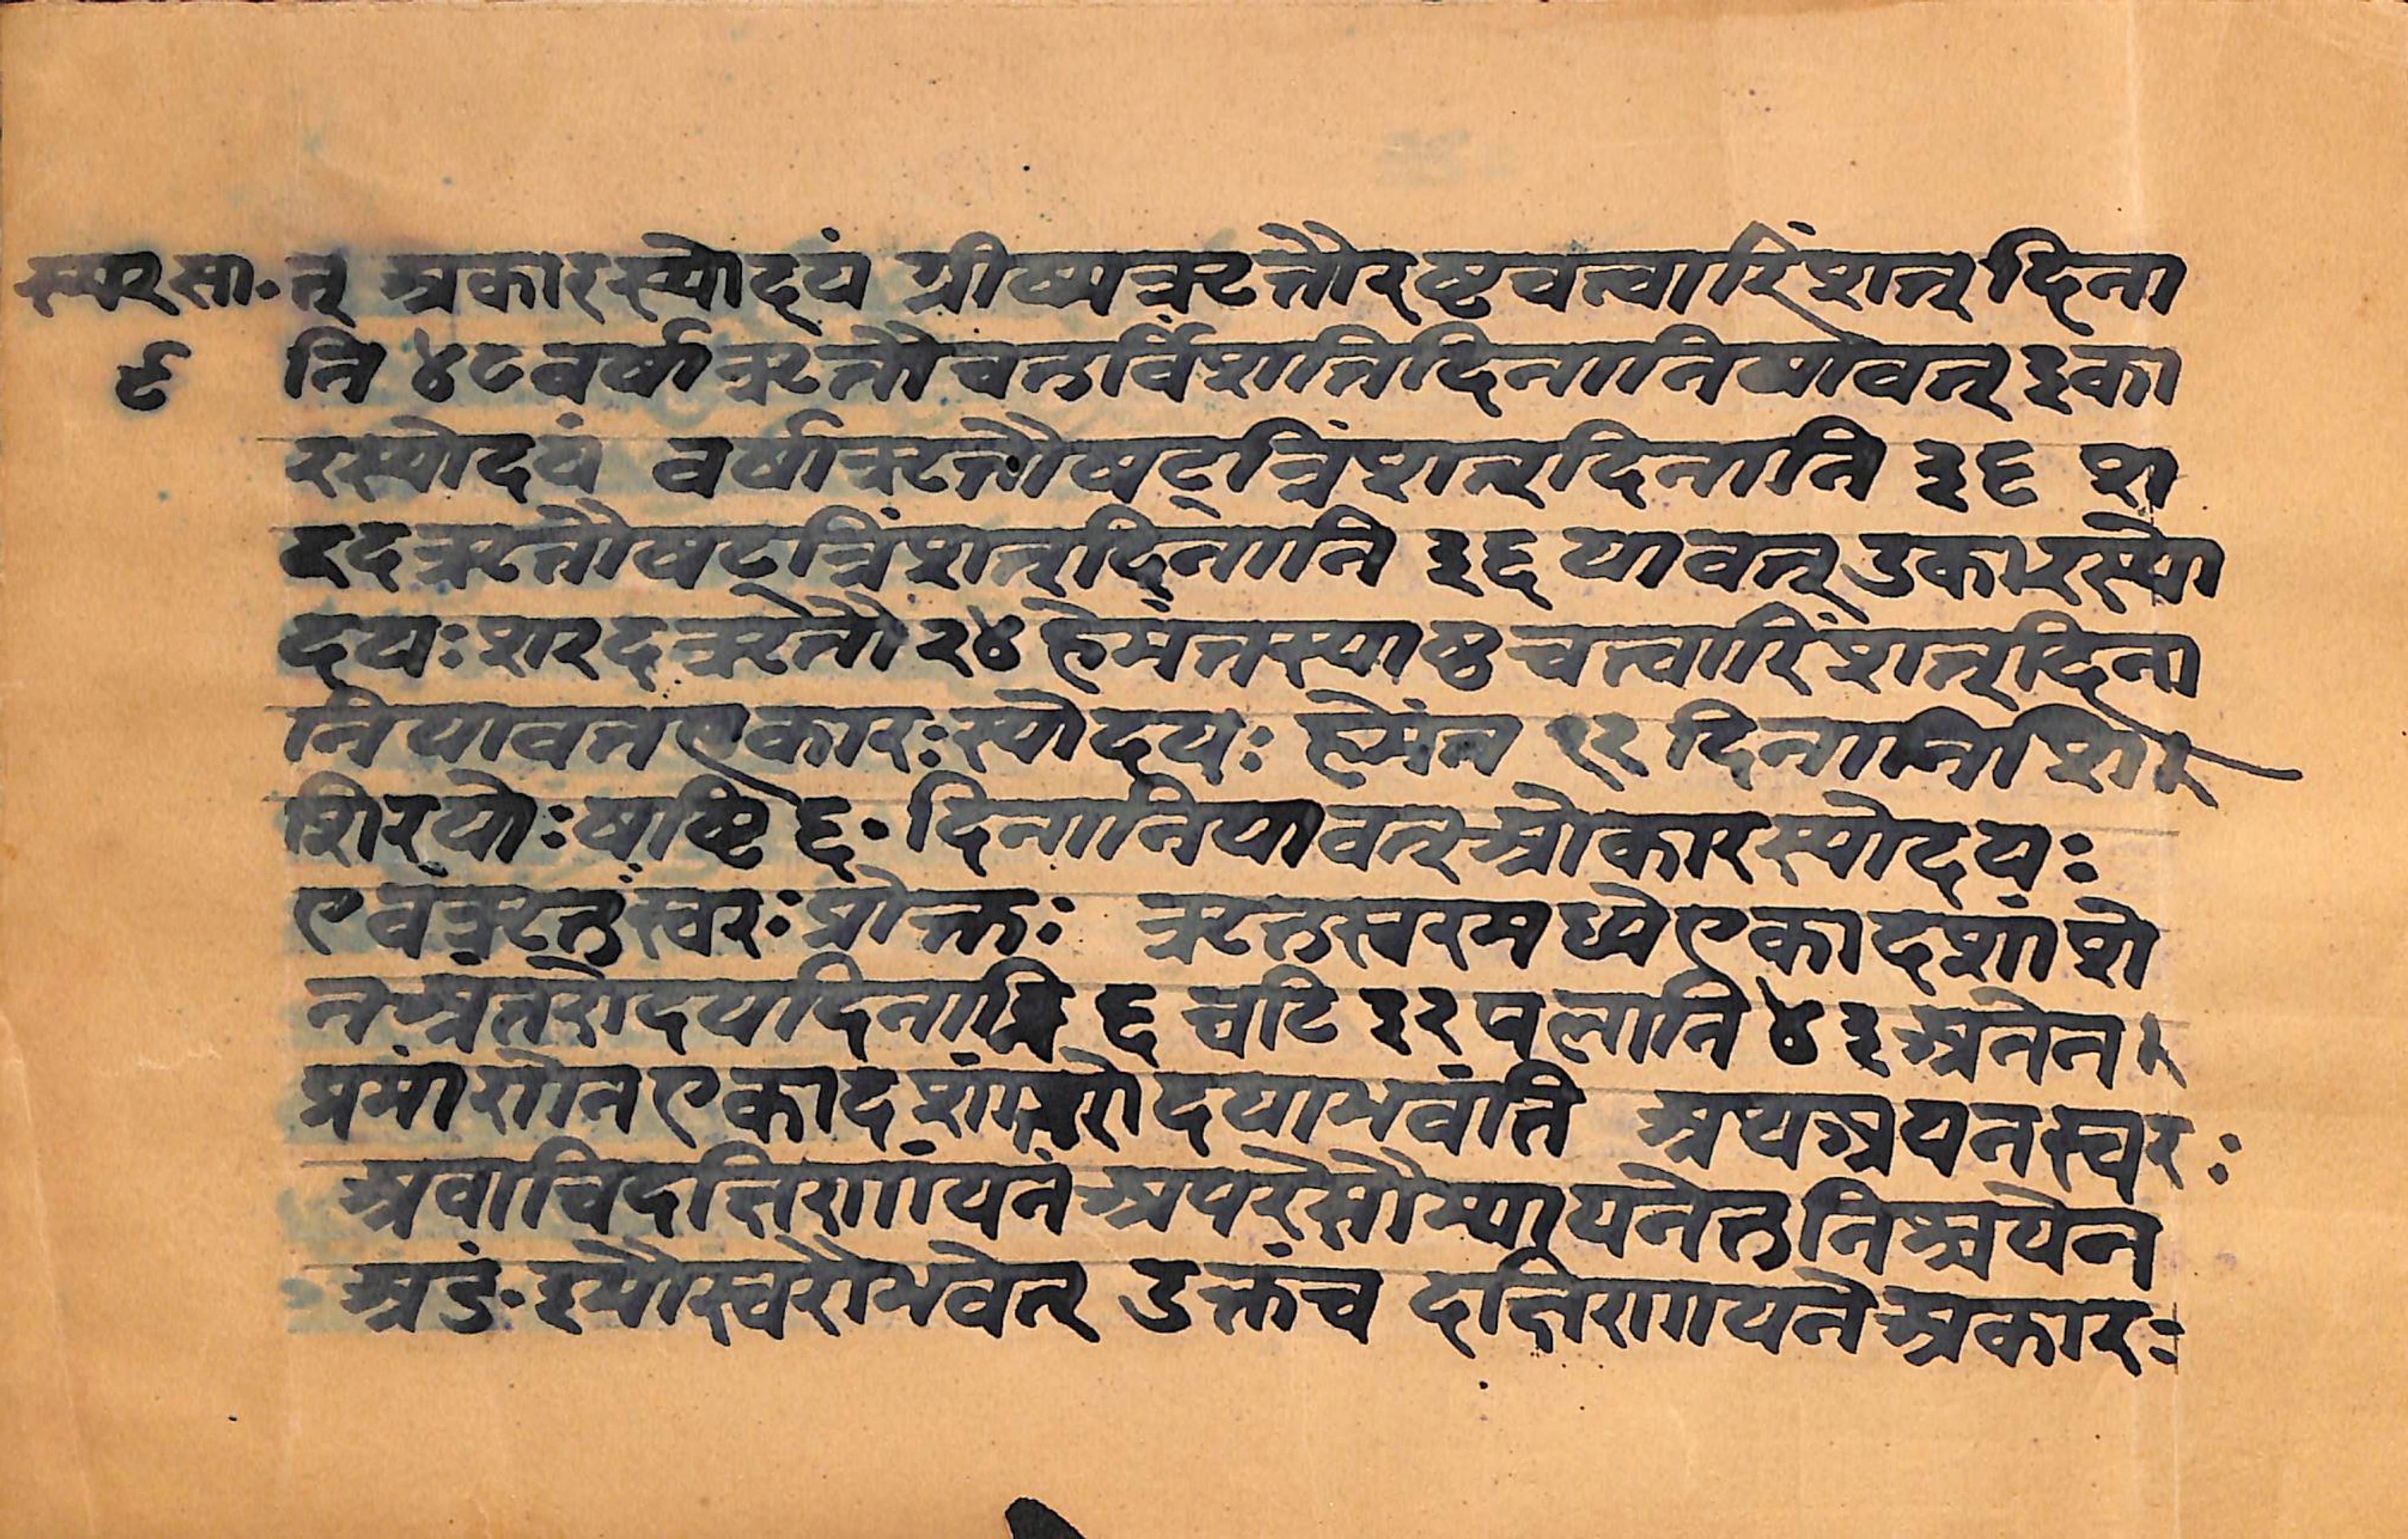 स्वरसा. त् अकारस्योदयं ग्रीष्मऋतौरष्टचत्वारिंशत् दिना
९ नि ४८ वर्षाऋतौ चतुर्विंशतिदिनानि यावत् इका
रस्योदयं वर्षाऋतौ षट्त्रिंशत् दिनानि ३६ श
रदऋतौ षट्त्रिंशत् दिनानि ३६ यावत् उकारस्यो
दयः शरदऋतौ २४ हेमंतस्याष्ठ चत्वारिंशत् दिना
नि यावत एकारःस्योदयः हेमंत १२ दिनानि शि
शिरयोः षष्टि ६० दिनानि यावत् ओकारस्योदयः
एवंऋतुस्वरः प्रोक्तः ऋतुस्वरमध्ये एकादशांशे
न अंतरोदयदिनानि ६ घटि ३२ पलानि ४३ अनेन
प्रमांणेन एकादशांतरोदयाभवंति अथ अयनस्वरः
अवाचिदक्षिणांयनं अपरेसौम्यायनेतु निश्चयेन
अइं. इयौस्वरौभवेत् उक्तंच दक्षिणायने अकारः